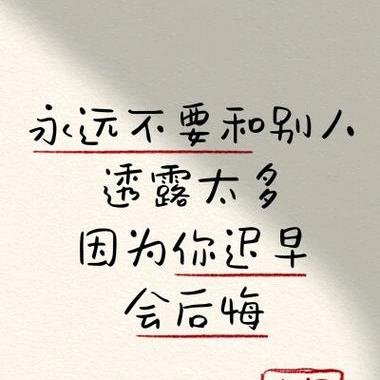 永远不要和别人
透露太多
因为你迟早
会后悔